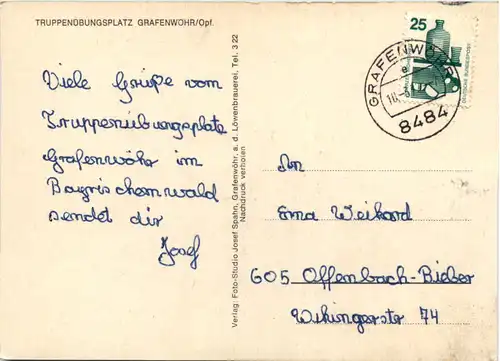 TRUPPENÜBUNGSPLATZ GRAFENWÖHR/Opf.
Viele Grüße vom
Truppenübungsplate
Grafenwöhr im
Bayrischemwald
sendet dir
Josef
Verlag: Foto-Studio Josef Spahn, Grafenwöhr, a. d. Löwenbrauerei, Tel. 3 22
Nachdruck verboten
25
DEUTSCHE BUNDESPOST
GRAFENWÖHR
8484
An
Erna Weikard
605 Offenbach-Bieber
Wikingerstr 74